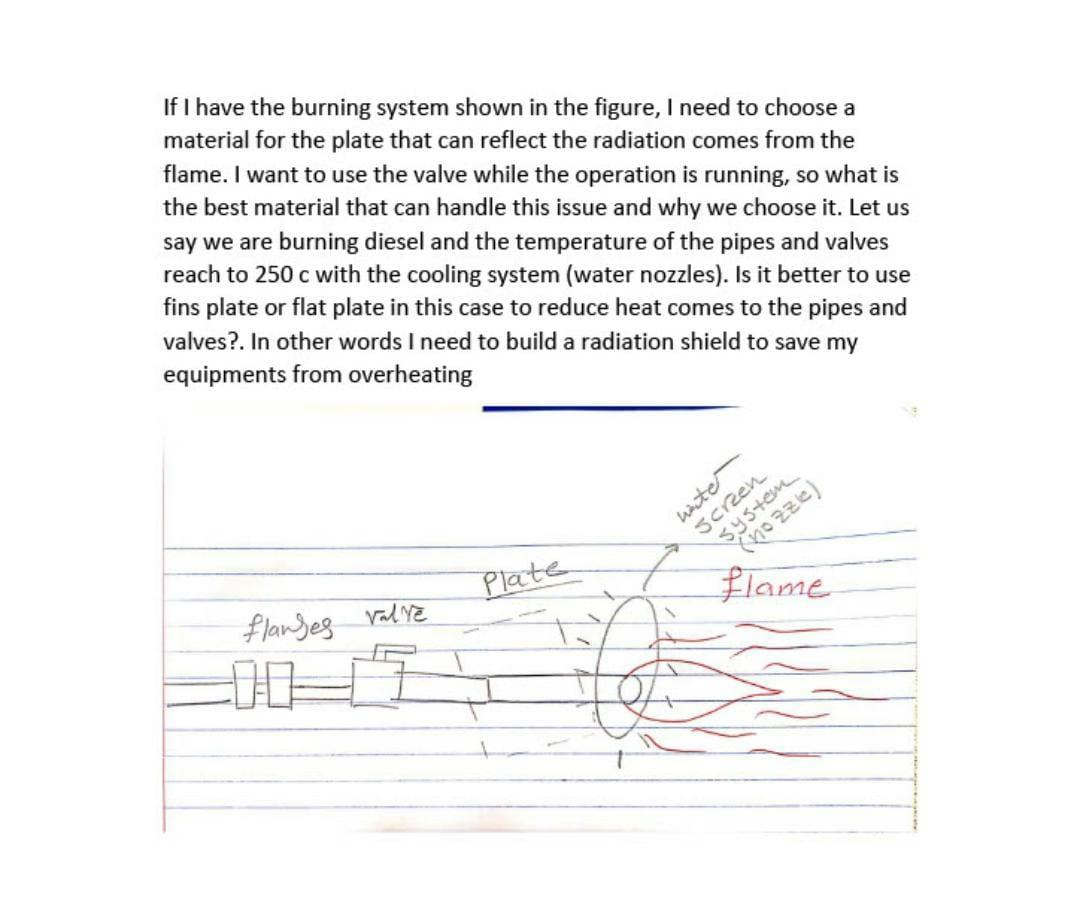 If I have the burning system shown in the figure, I need to choose a
material for the plate that can reflect the radiation comes from the
flame. I want to use the valve while the operation is running, so what is
the best material that can handle this issue and why we choose it. Let us
say we are burning diesel and the temperature of the pipes and valves
reach to 250 c with the cooling system (water nozzles). Is it better to use
fins plate or flat plate in this case to reduce heat comes to the pipes and
valves?. In other words I need to build a radiation shield to save my
equipments from overheating
water
screen
system
(nozzle)
Plate
flame
flanges
valve